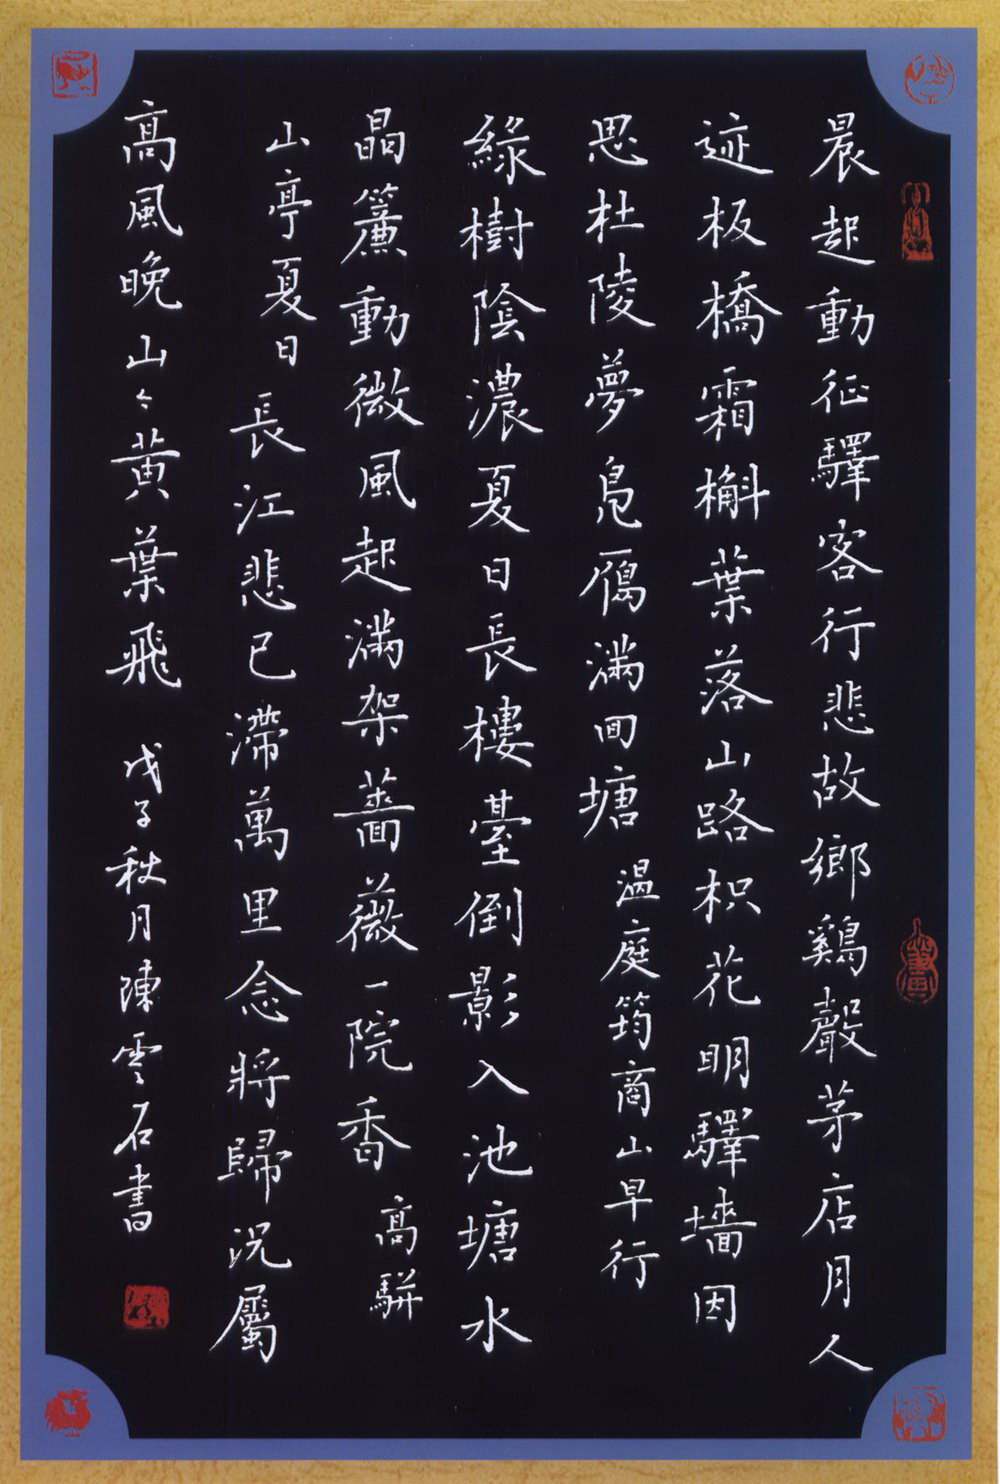 晨起動征驛客行悲故鄉鷄聲茅店月人
迹板橋霜槲葉落山路枳花明驛墻因
思杜陵夢鳧雁滿回塘 温庭筠商山早行
綠樹陰濃夏日長樓臺倒影入池塘水
晶簾動微風起滿架薔薇一院香 高駢
山亭夏日 長江悲已滯萬里念將歸況屬
高風晚山々黄葉飛 戊子秋月陳雲石書